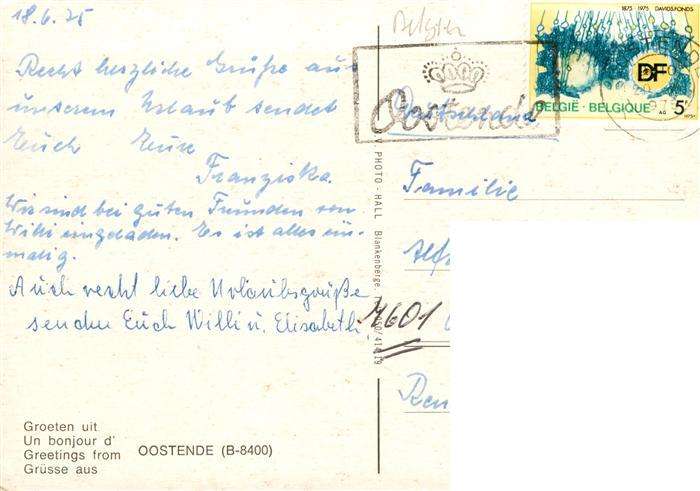 18.6.75
Recht herzliche Grüße aus
unserem Urlaub sendet
Euch Eure
Franziska.
Wir sind bei guten Freunden von
Willi eingeladen. Es ist alles ein-
malig.
Auch recht liebe Urlaubsgrüße
senden Euch Willi u. Elisabeth
Groeten uit
Un bonjour d'
Greetings from
Grüsse aus
OOSTENDE (B-8400)
S.V. PHOTO - HALL Blankenberge.
Belgien
Oostende
1875 1975 DAVIDSFONDS
DF
BELGIË - BELGIQUE 5F
AG 1975
Deutschland
Familie
Alf
7601
Ren